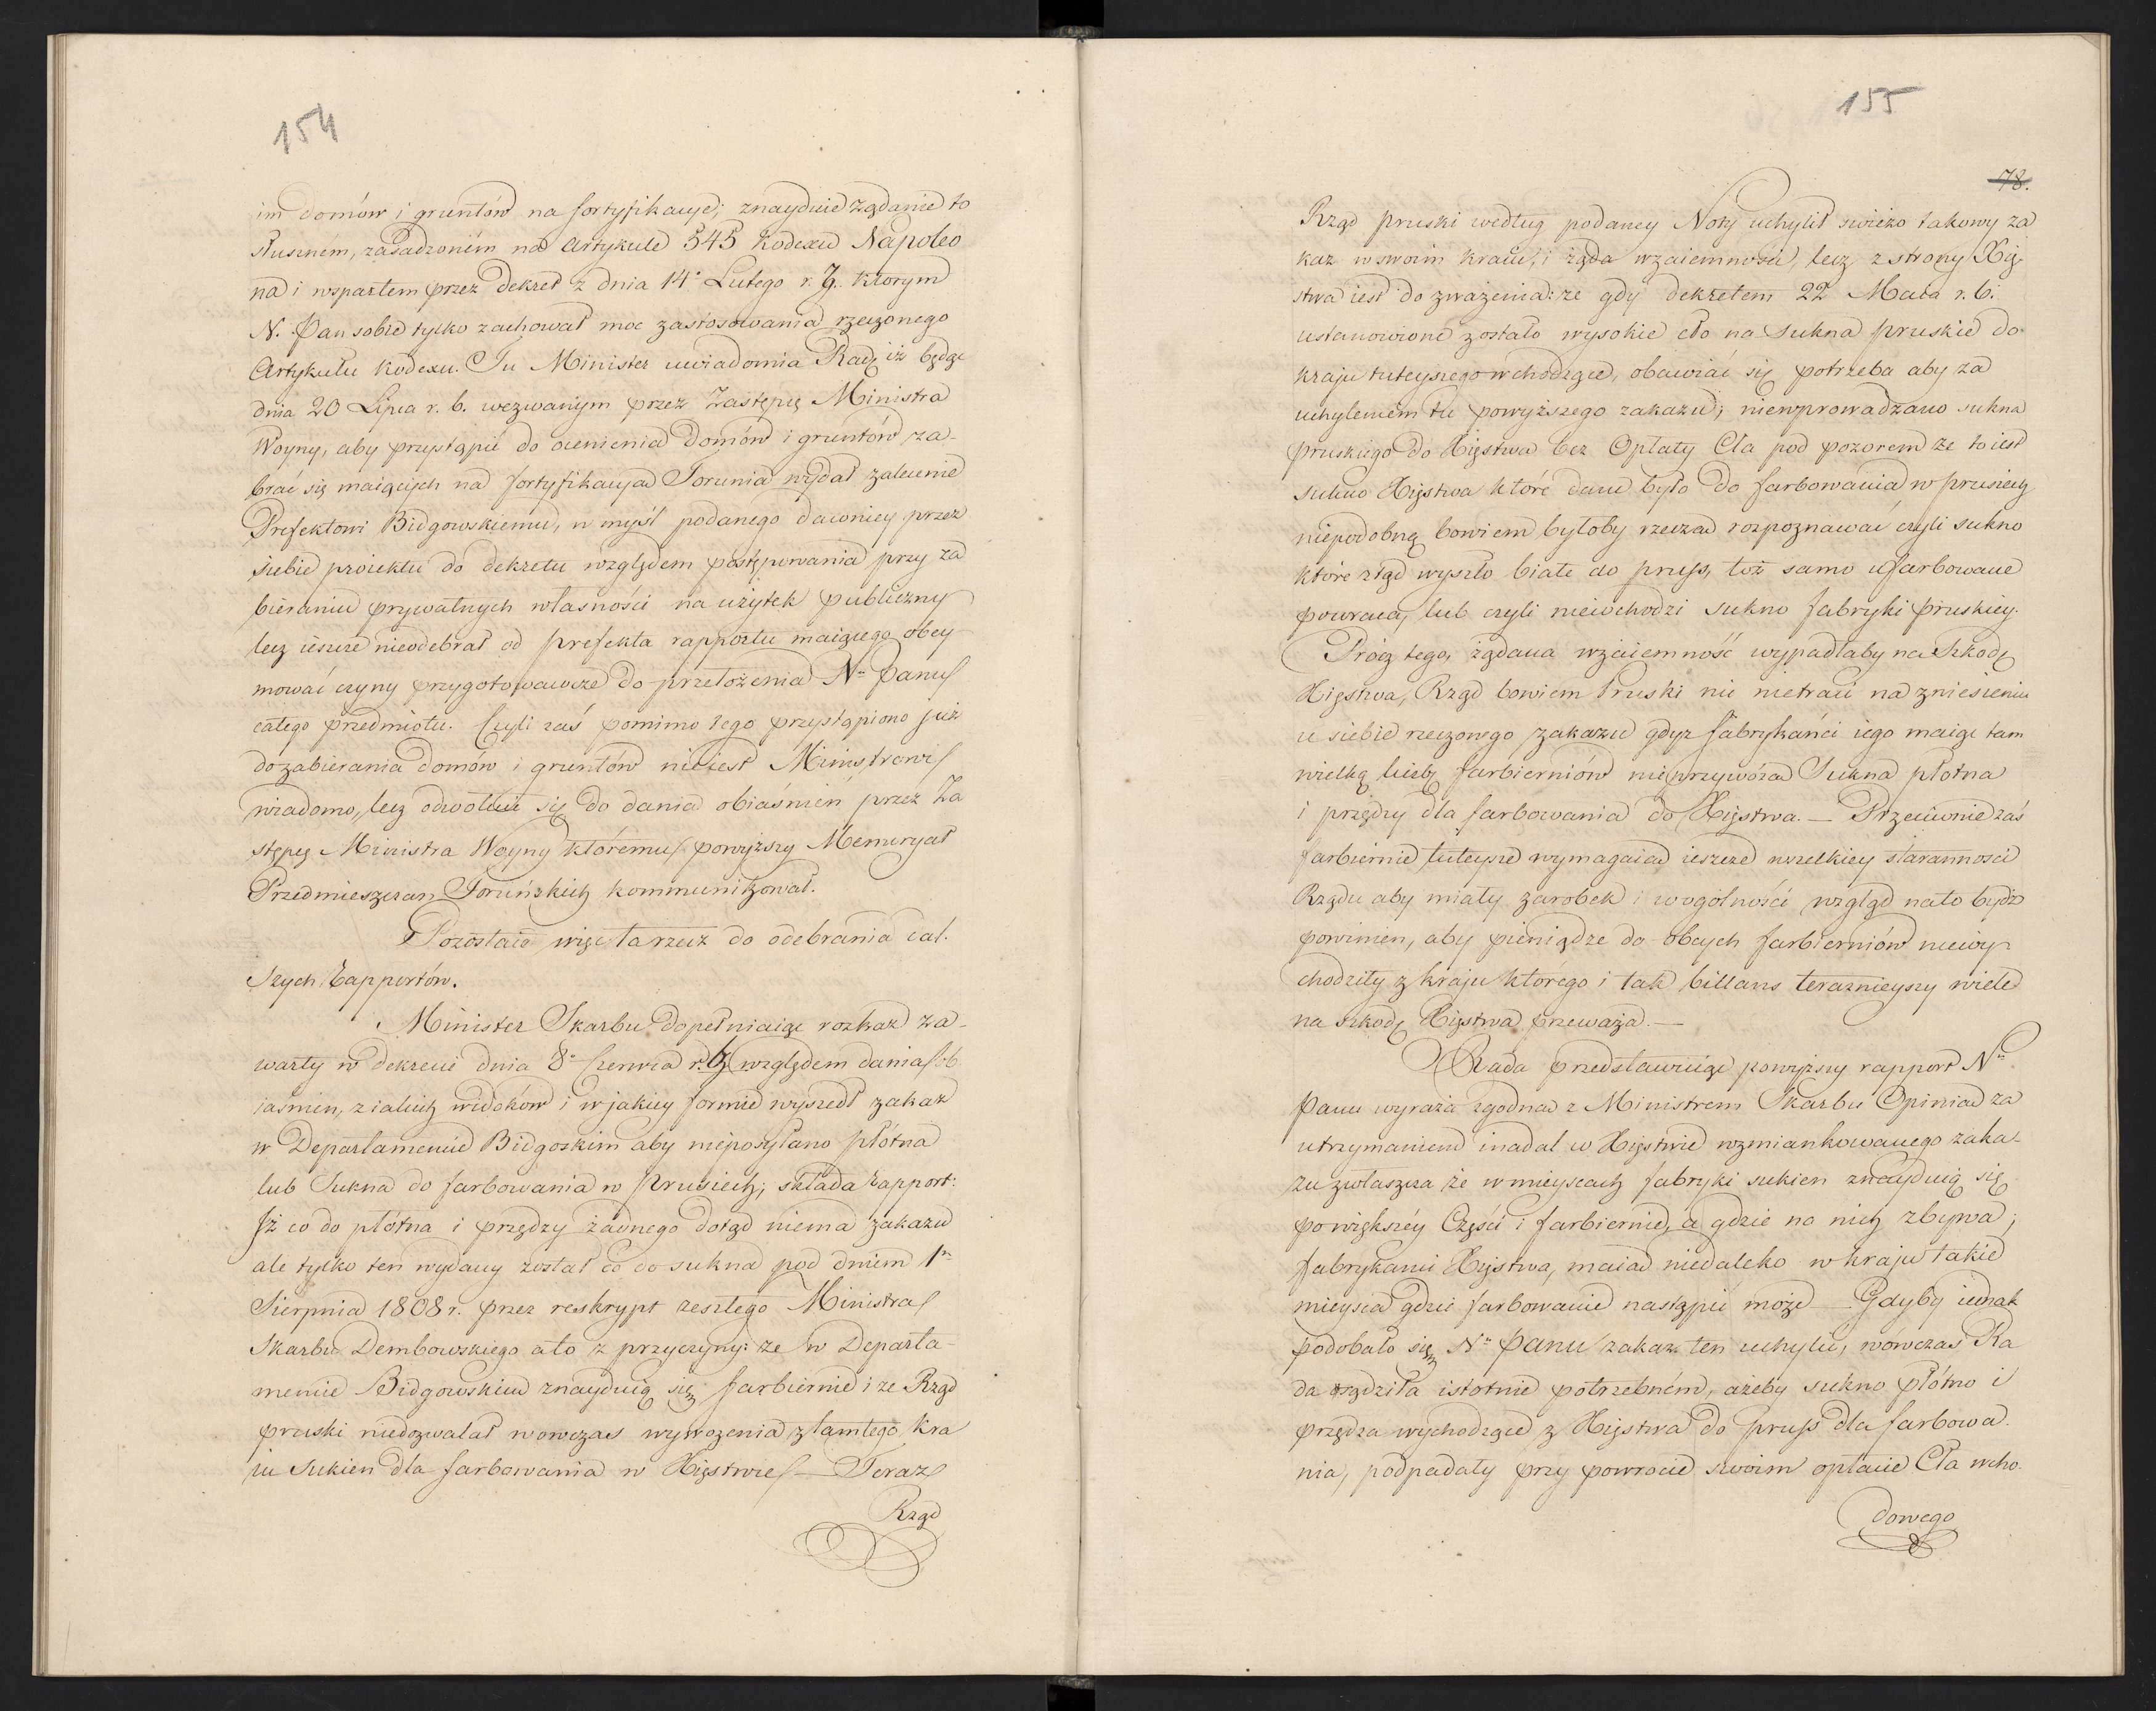 154
im domów i gruntów na fortyfikacye; znayduie żądanie to
słuszném, zasadzoném na Artykule 545 Kodexu Napoleo
na i wspartem przez Dekret z dnia 14° Lutego r. z. którym
N. Pan sobie tylko zachował moc zastosowania rzeczonego
Artykułu Kodexu. Tu Minister uwiadomia Radę iż będąc
dnia 20 Lipca r. b. wezwanym przez Zastępcę Ministra
Woyny, aby przystąpić do ocenienia Domów i gruntów za-
brać się maiących na fortyfikacya Torunia wydał zalecenie
Prefektowi Bidgowskiemu, w myśl podanego dawniey przez
siebie proiektu do dekretu względem postępowania przy za
bieraniu prywatnych własności na użytek publiczny
lecz ieszcze nieodebrał od prefekta rapportu maiącego obey-
mować czyny przygotowawcze do przełożenia N° Panu
całego przedmiotu. Czyli zaś pomimo tego przystąpiono już
do zabierania domów i gruntów nie iest Ministrowi
wiadomo, lecz odwołuie się do dania obiaśnień przez Za
stępcę Ministra Woyny któremu powyższy Memoryał
Przedmieszczan Toruńskich kommunikował.
Pozostaie więc ta rzecz do odebrania dal.
szych Rapportów.
Minister Skarbu dopełniaiąc rozkaz za-
warty w dekrecie dnia 8° Czerwca r. b. względem dania ob
iaśnien, z iakich widoków i w jakiey formie wyszedł zakaz
w Departamencie Bidgoskim aby nieposyłano płótna
lub Sukna do farbowania w Prusiech; składa Rapport:
Iż co do płótna i przędzy żadnego dotąd niema zakazu
ale tylko ten wydany został co do sukna pod dniem 1°
Sierpnia 1808 r. przez reskrypt zeszłego Ministra
Skarbu Dembowskiego a to z przyczyny: że w Departa-
mencie Bidgowskim znayduią się farbiernie i że Rząd
pruski niedozwalał wowczas wywozenia z tamtego kra
iu Sukien dla farbowania w Xięstwie — Teraz
Rząd
155
78.
Rząd pruski według podaney Noty uchylił swieżo takowy za
kaz w swoim kraiu, i żąda wzaiemności, lecz z strony Xię-
stwa iest do zważenia: że gdy dekretem 22 Maia r. b.
ustanowione zostało wysokie cło na Sukna pruskie do
kraju tuteyszego wchodzące, obawiać się potrzeba aby za
uchyleniem tu powyższego zakazu; niewprowadzano sukna
pruskiego do Xięstwa bez Opłaty Cła pod pozorem że to iest
sukno Xięstwa które dane było do farbowania w prusiech
niepodobną bowiem byłoby rzeczą rozpoznawać czyli sukno
które ztąd wyszło białe do pruss, toż samo ufarbowane
powraca, lub czyli niewchodzi sukno fabryki pruskiey.
Prócz tego, żądana wzaiemność wypadłaby na Szkodę
Xięstwa, Rząd bowiem Pruski nic nietraci na zniesieniu
u siebie rzeczonego zakazu gdyż fabrykańci iego maiąc tam
wielką liczbę farbierniów nieprzywóżą Sukna płótna
i przędzy dla farbowania do Xięstwa. — Przeciwnie zaś
farbiernie tuteysze wymagaią ieszcze wszelkiey staranności
Rządu aby miały zarobek i wogólności wzgląd na to bydź
powinien, aby pieniądze do obcych farbierniów niewy-
chodziły z kraju którego i tak billans teraznieyszy wiele
na szkodę Xięstwa przeważa. —
Rada przedstawuiąc powyższy rapport N°
Panu wyraża zgodną z Ministrem Skarbu Opinią za
utrzymaniem i nadal w Xięstwie wzmiankowanego zaka-
zu zwłaszcza że w mieyscach fabryki sukien znayduią się
po większéy Części i farbiernie, a gdzie na nich zbywa;
fabrykanci Xięstwa, maią niedaleko w kraju takie
mieysca gdzie farbowanie nastąpić może — Gdyby iednak
podobało się N° Panu zakaz ten uchylić, wówczas Ra
da sądziła istotnie potrzebném, ażeby sukno płótno i
przędza wychodzące z Xięstwa do pruss dla farbowa.
nia, podpadały przy powrocie swoim opłacie Cła wcho.
dowego